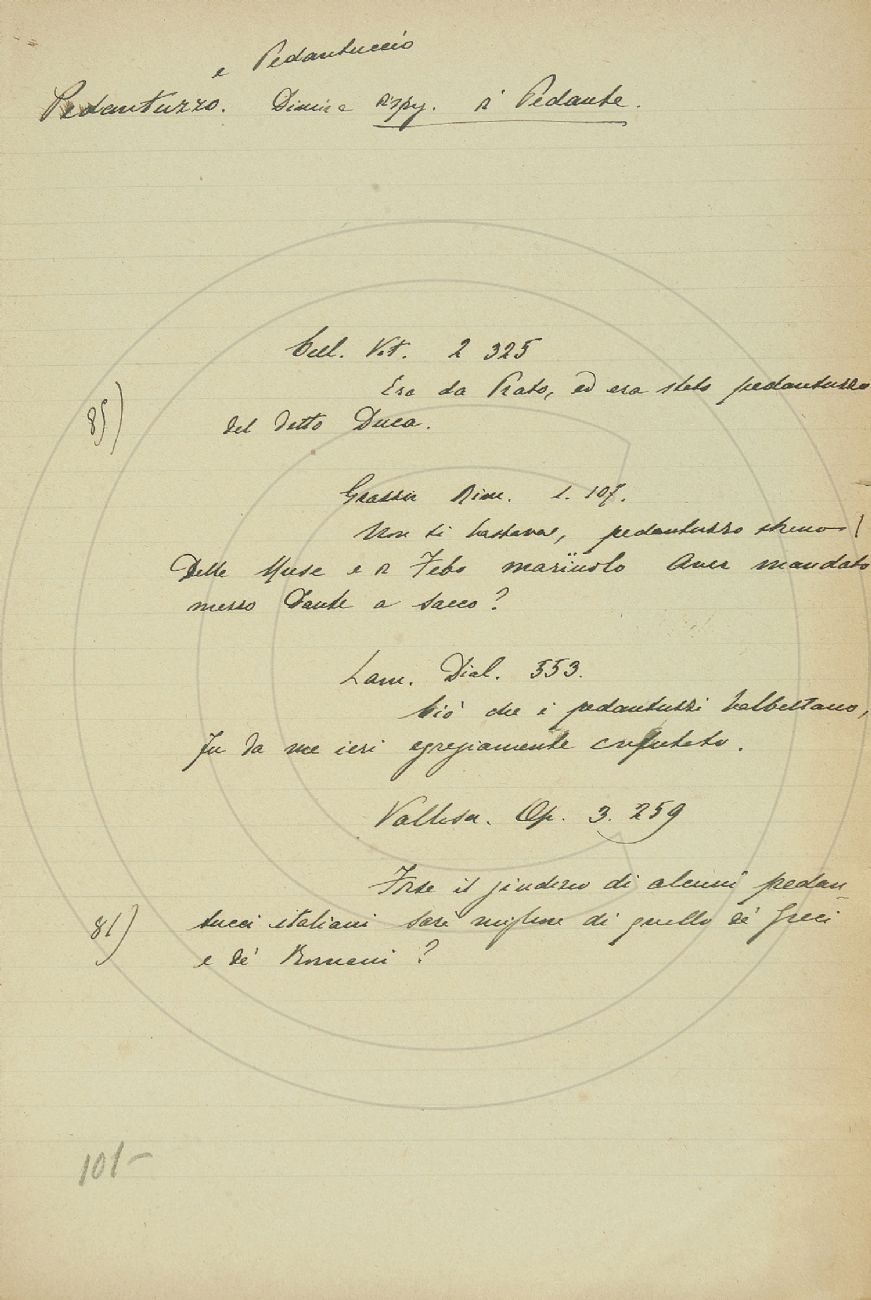 e Pedantuccio
Pedantuzzo. Dimin. e dispy. di Pedante.
Cell. Vit. 2 325
Era da Prato, ed era stato pedantuzzo
85)
del detto Duca.
Grazzin Rim. 1. 107.
Non ti bastava, pedantuzzo
Delle Muse e di Febo mariuolo Aver mandato
mezzo Dante a sacco?
Lam. Dial. 553.
Ciò che i pedantuzzi balbettano,
fu da me ieri egregiamente confutato.
Vallisn. Op. 3. 259
Forse il giudizio di alcuni pedan
81)
tucci italiani sarà migliore di quello de' Greci
e de' Romani?
101-